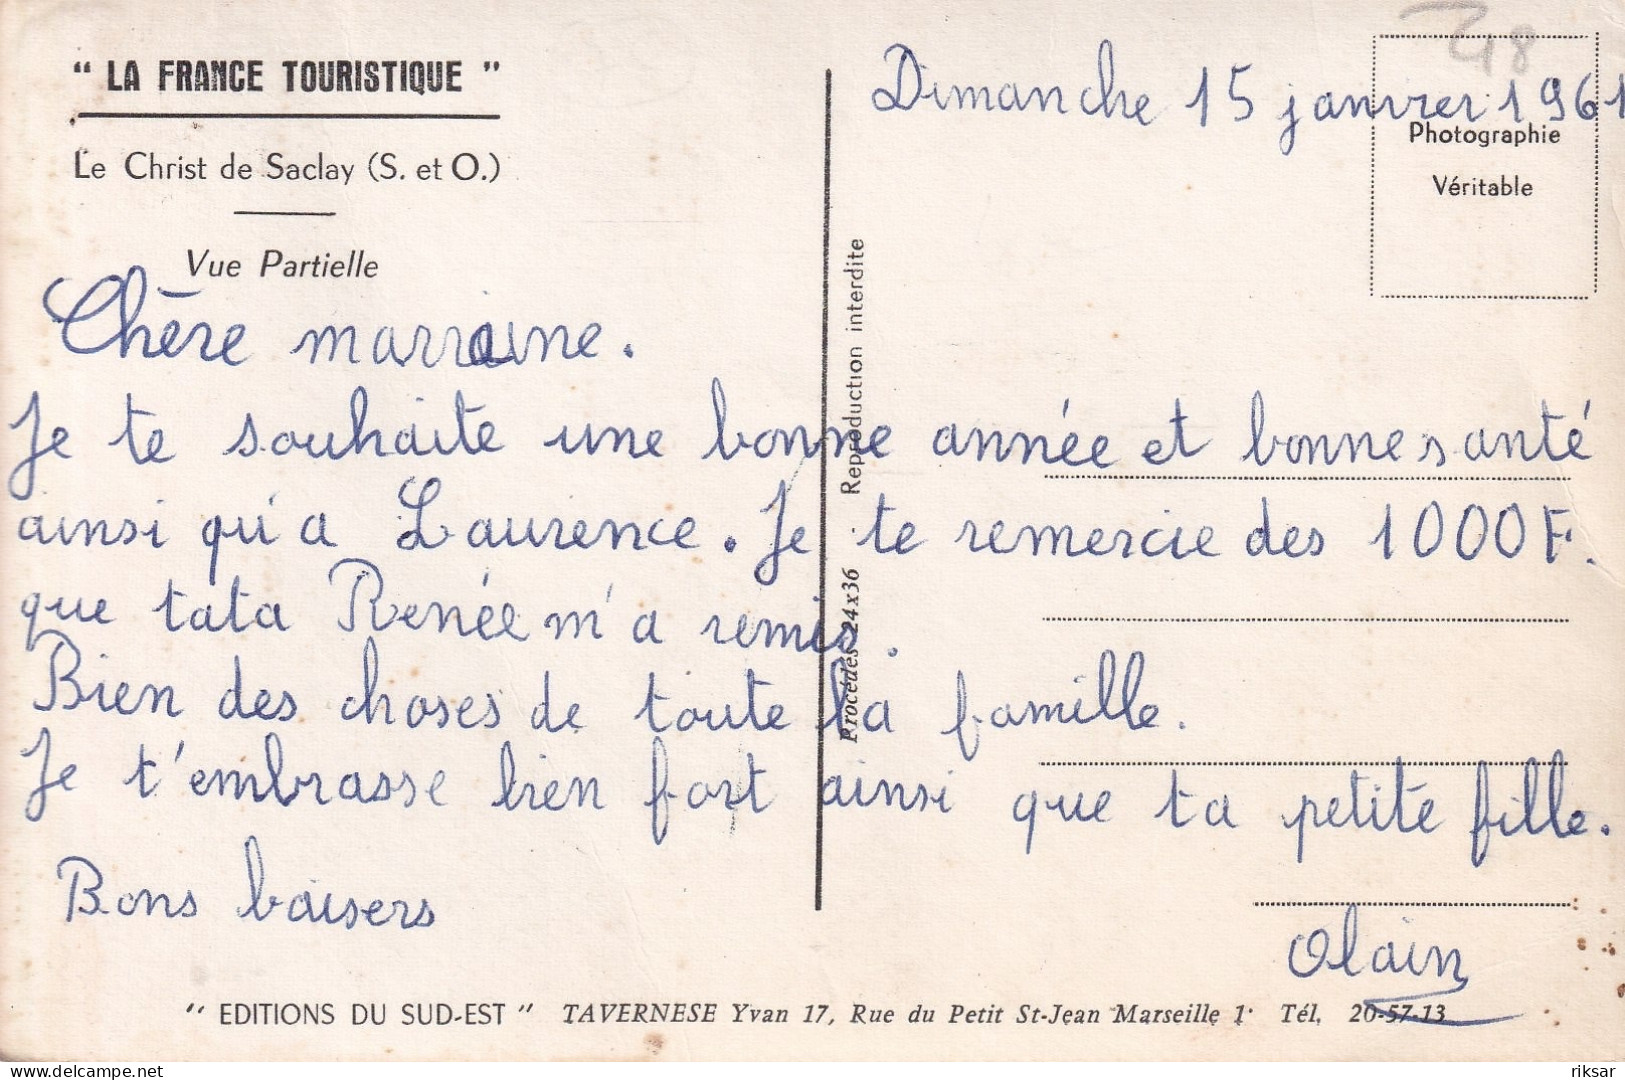 " LA FRANCE TOURISTIQUE "
Le Christ de Saclay (S. et O.)
Vue Partielle
48
Dimanche 15 janvier 1961
Photographie
Véritable
Chère marraine.
Je te souhaite une bonne année et bonne santé
ainsi qu'a Laurence. Je te remercie des 1000F.
que tata Renée m'a remis.
Bien des choses de toute la famille.
Je t'embrasse bien fort ainsi que ta petite fille.
Bons baisers
Alain
Procédés 24x36 Reproduction interdite
" EDITIONS DU SUD-EST " TAVERNESE Yvan 17, Rue du Petit St-Jean Marseille 1° Tél. 20-57-13
delcampe.net
riksar